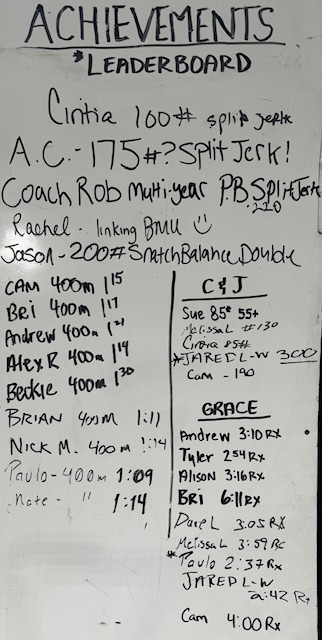 ACHIEVEMENTS
*LEADERBOARD
Cintia 100# split jerk
A.C. - 175#? Split Jerk!
Coach Rob Multi-year P.B. Split Jerk
210
Rachel - linking BMU
Jason - 200# Snatch Balance Double
CAM 400m 1:15
Bri 400m 1:17
Andrew 400m 1:21
Alex R 400m 1:19
Beckie 400m 1:30
BRIAN 400M 1:11
NICK M. 400m 1:14
Paulo - 400m 1:09
Nate - " 1:14
C & J
Sue 85# 55+
Melissa L #130
Cintia 85#
*JARED L-W 300
Cam - 190
GRACE
Andrew 3:10 Rx
Tyler 2:54 Rx
Alison 3:16 Rx
Bri 6:11 Rx
Dave L 3:05 Rx
Melissa L 3:59 Rx
*Paulo 2:37 Rx
JARED L-W
2:42 Rx
Cam 4:00 Rx